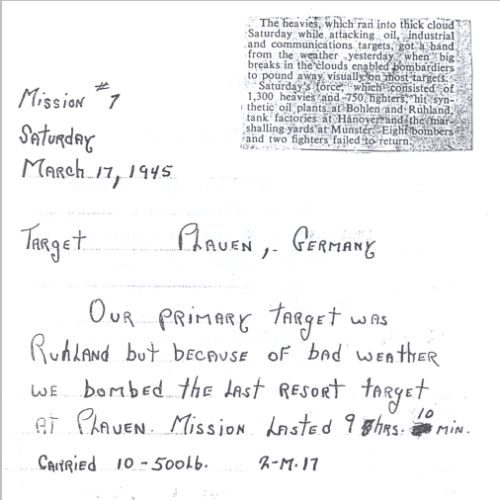 The heavies, which ran into thick cloud
Saturday while attacking oil, industrial
and communications targets, got a hand
from the weather yesterday when big
breaks in the clouds enabled bombardiers
to pound away visually on most targets.
Saturday's force, which consisted of
1,300 heavies and 750 fighters, hit syn-
thetic oil plants at Bohlen and Ruhland,
tank factories at Hanover and the mar-
shalling yards at Munster. Eight bombers
and two fighters failed to return.
Mission #7
Saturday
March 17, 1945
Target Plauen, Germany
Our primary target was
Ruhland but because of bad weather
we bombed the last resort target
at Plauen. Mission lasted 9 hrs. 10 min.
Carried 10-500lb. 2-M.17